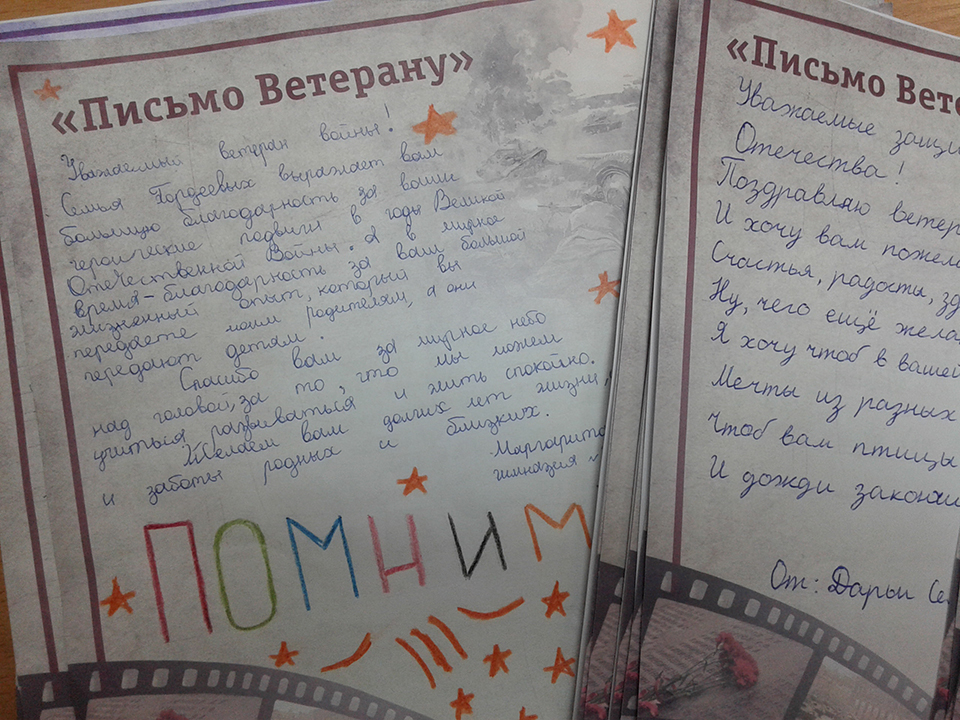 «Письмо Ветерану»
Уважаемый ветеран войны!
Семья Гордеевых выражает вам
большую благодарность за ваши
героические подвиги в годы Великой
Отечественной Войны. А в мирное
время - благодарность за ваш большой
жизненный опыт, который вы
передаёте моим родителям, а они
передают детям.
Спасибо вам за мирное небо
над головой, за то, что мы можем
учиться, развиваться и жить спокойно.
Желаем вам долгих лет жизни,
и заботы родных и близких.
Маргарита
гимназия
ПОМНИМ
«Письмо Вете
Уважаемые защи
Отечества!
Поздравляю ветер
И хочу вам пожела
Счастья, радости, зд
Ну, чего ещё жела
Я хочу чтоб в вашей
Мечты из разных
Чтоб вам птицы
И дожди закончи
От: Дарьи Се